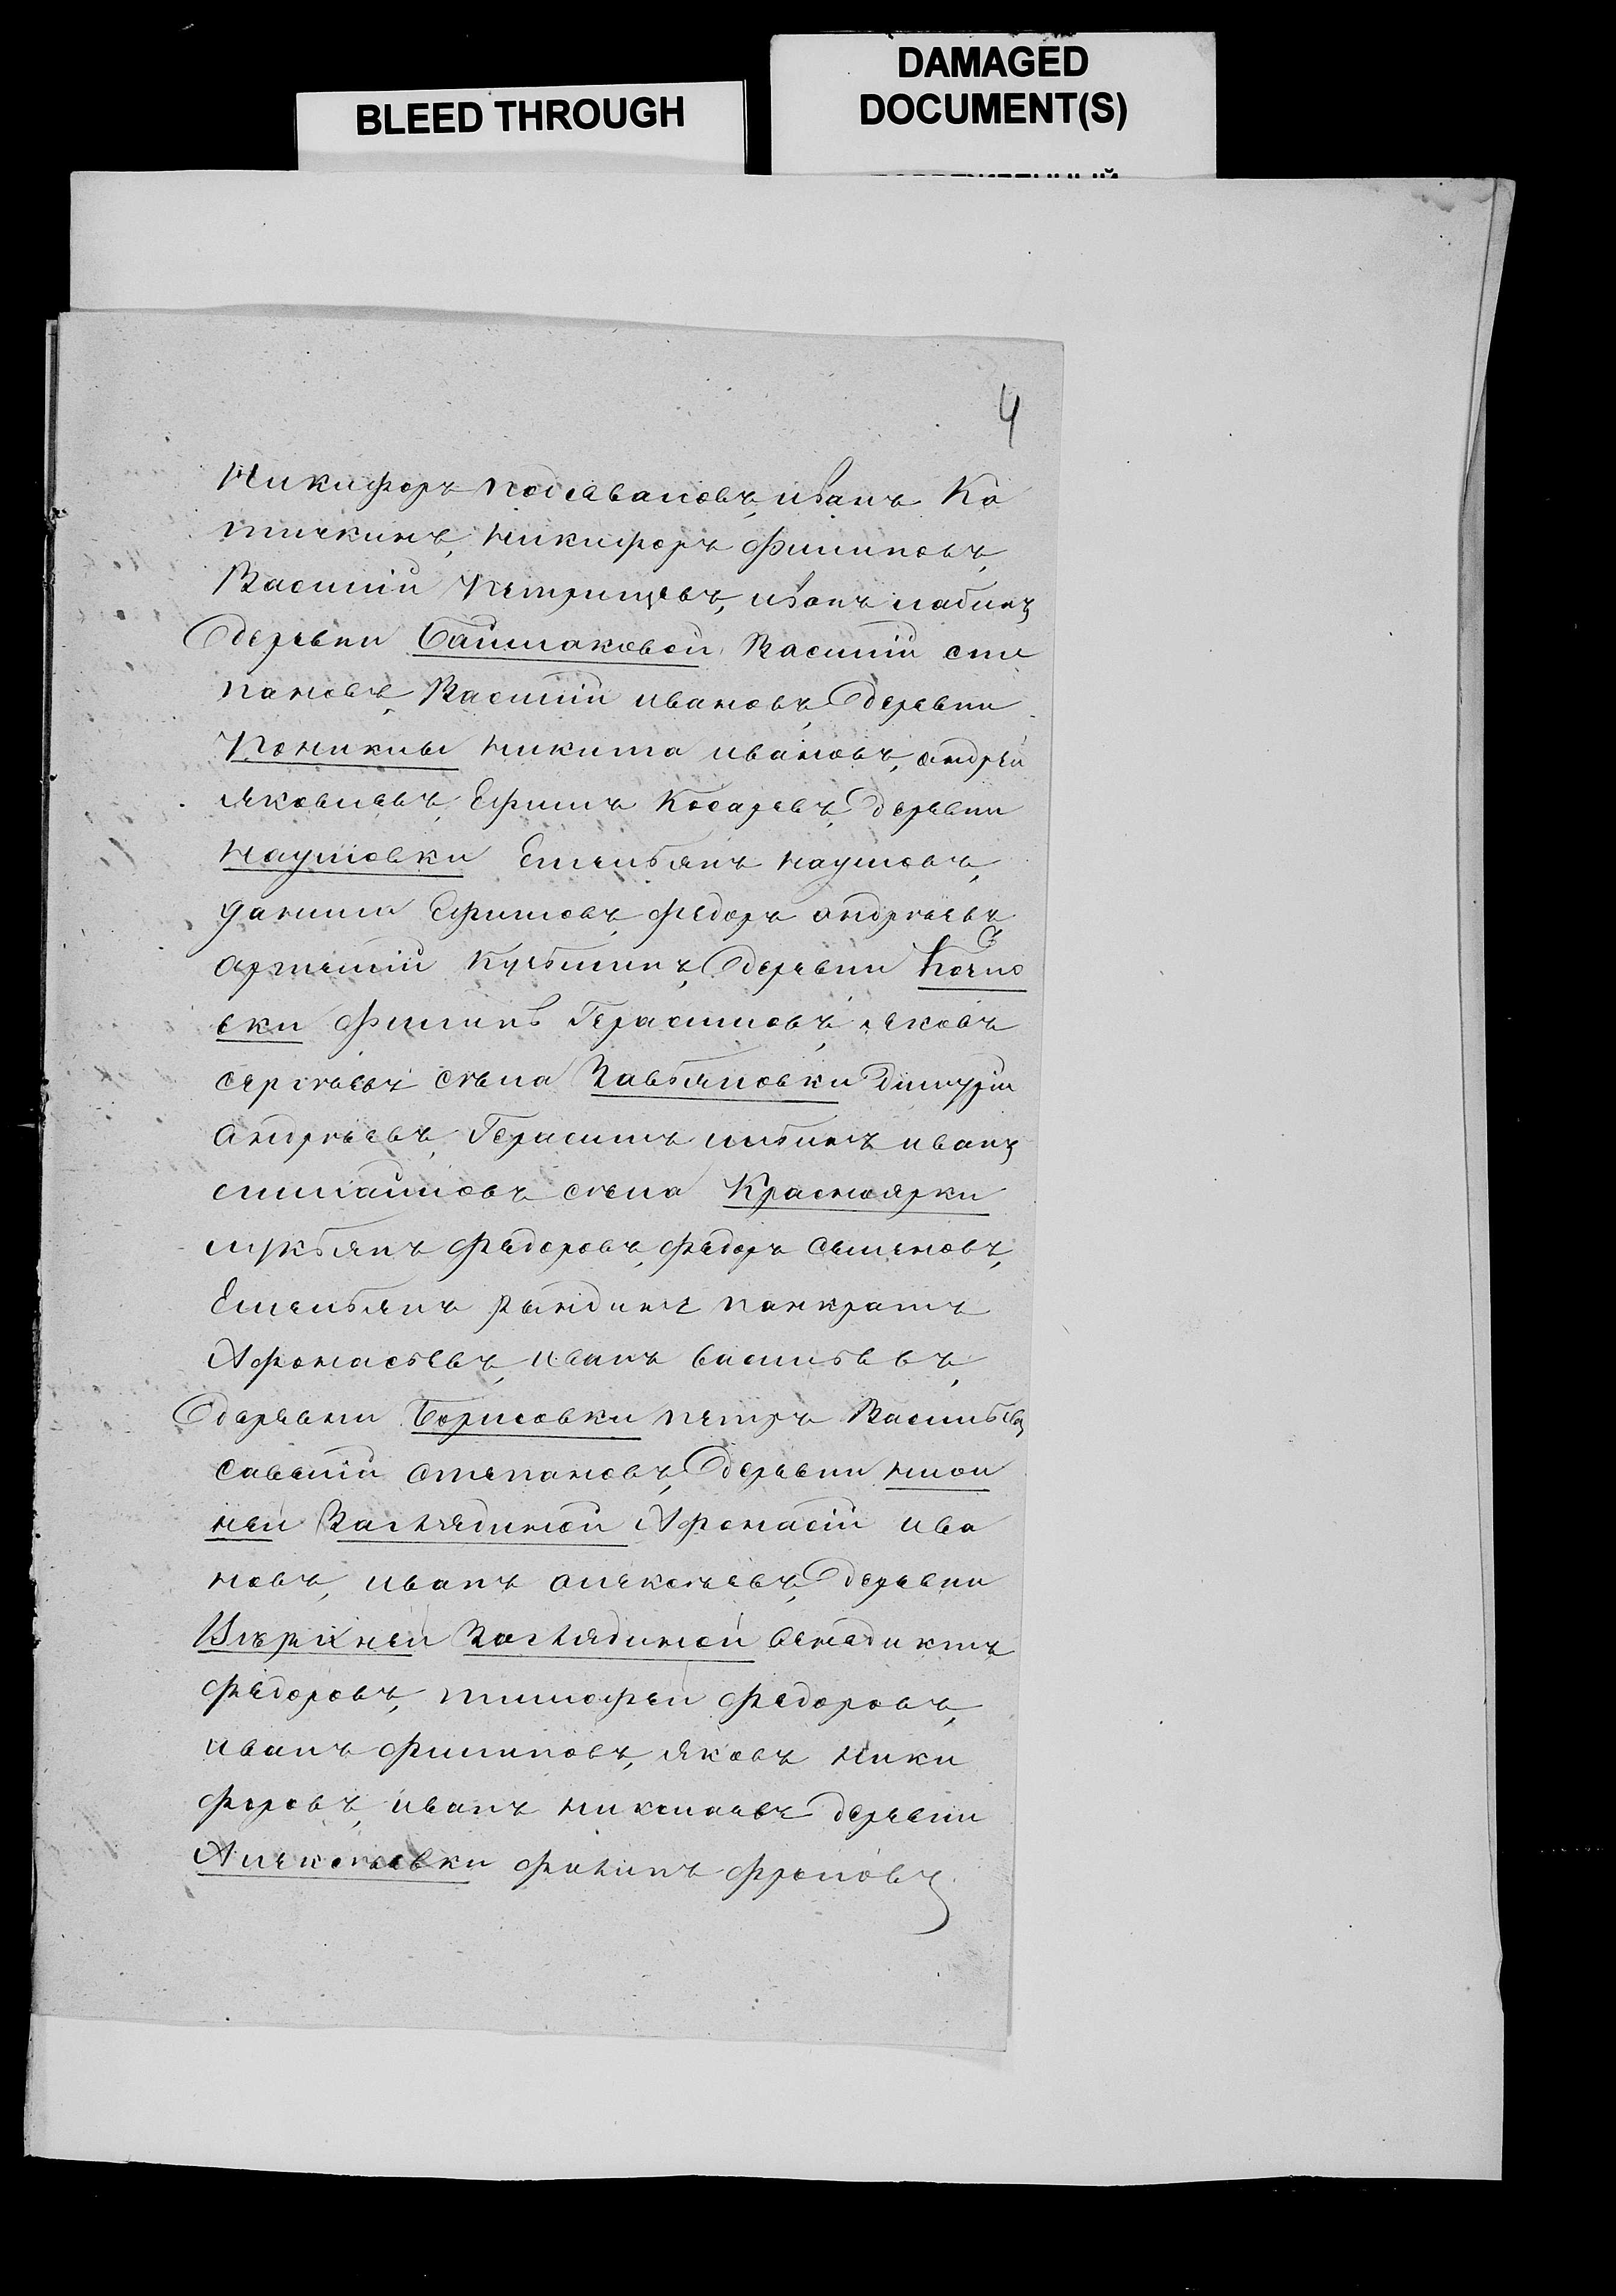 BLEED THROUGH
DAMAGED
DOCUMENT(S)
4
Никифоръ подсевановъ, иванъ Ко
тичкинъ, никифоръ филиповъ,
Василій Петрищевъ, иванъ лабинъ
деревни Башмаковой Василій сте
пановъ, Василій ивановъ, деревни
Поникмы никита ивановъ, андрей
яковлевъ, Ефимъ Косаревъ, деревни
Наумовки Емельянъ наумовъ,
данила Ефимовъ, федоръ андреевъ
артемій Кузьминъ, деревни
вки филипъ Герасимовъ, яковъ
сергѣевъ села Кавьяновки Дмитрій
андрѣевъ, Герасимъ иванъ
села Красноярки
лукьянъ федоровъ, федоръ семеновъ,
Емельянъ рындинъ панкратъ
Афонасьевъ, иванъ васильевъ,
деревни Борисовки петръ Васильевъ
савелій степановъ, деревни нжои
ней Каглядиной Афонасій ива
новъ, иванъ алексѣевъ, деревни
Вѣрхней Каглядиной Венедиктъ
федоровъ, тимофей федоровъ,
иванъ филиповъ, яковъ ники
форовъ, иванъ николаевъ деревни
Алексѣевки филипъ фроловъ